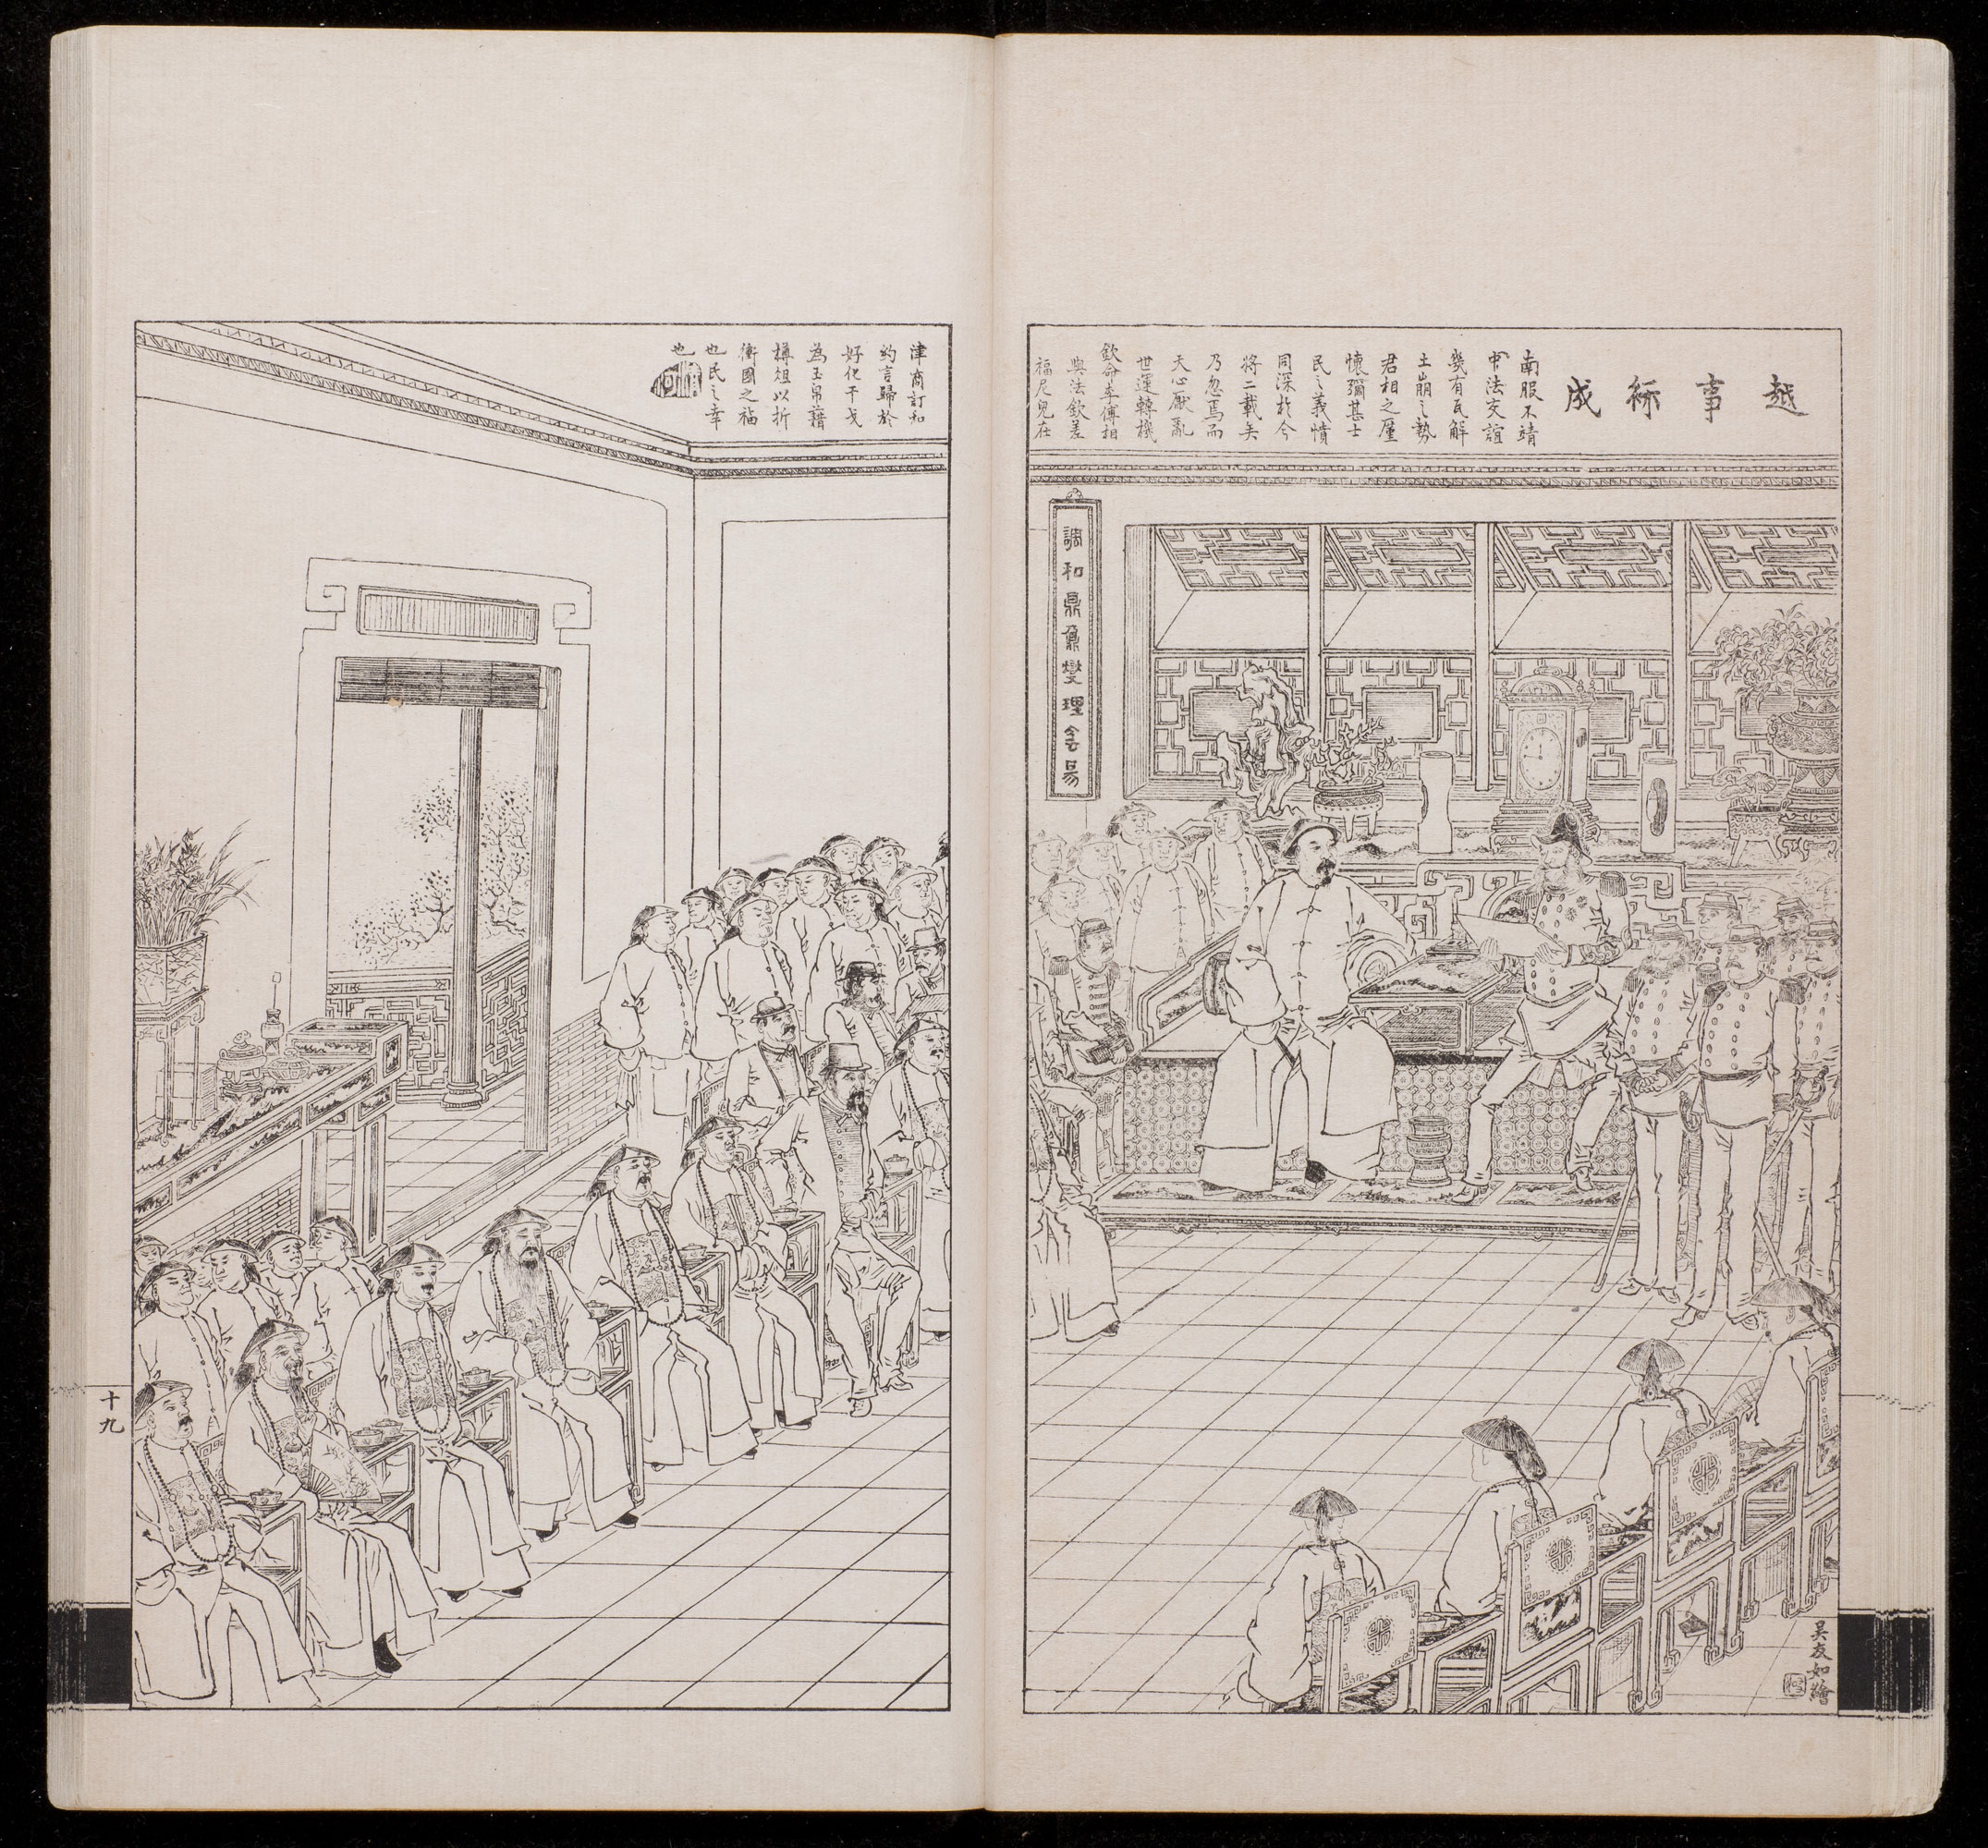 越事行成
南服不靖
中法交誼
幾有瓦解
土崩之勢
君相之廑
懷彌甚士
民之義憤
同深於今
將二載矣
乃忽焉而
天心厭亂
世運轉機
欽命李傅相
與法欽差
福尼兒在
津商訂和
約言歸於
好化干戈
為玉帛藉
樽俎以折
衝國之福
也民之幸
也
調和鼎鼐燮理侌昜
吳友如繪
十九